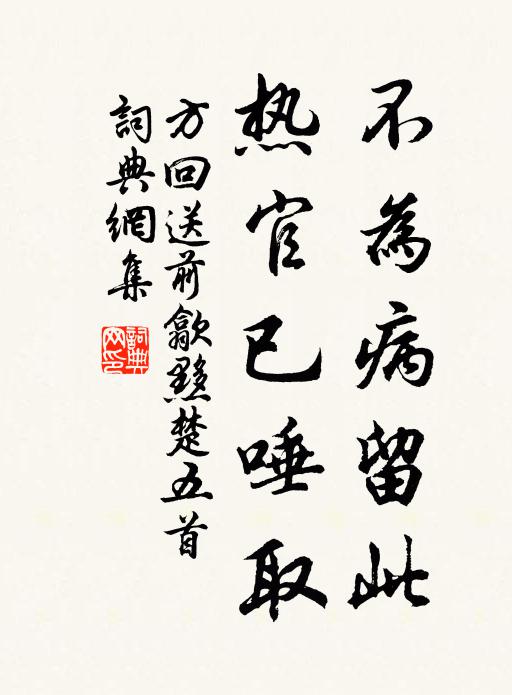 不為病留此
热官已唾取
方回送前歙黟楚五首
詞典網集
詞典網印